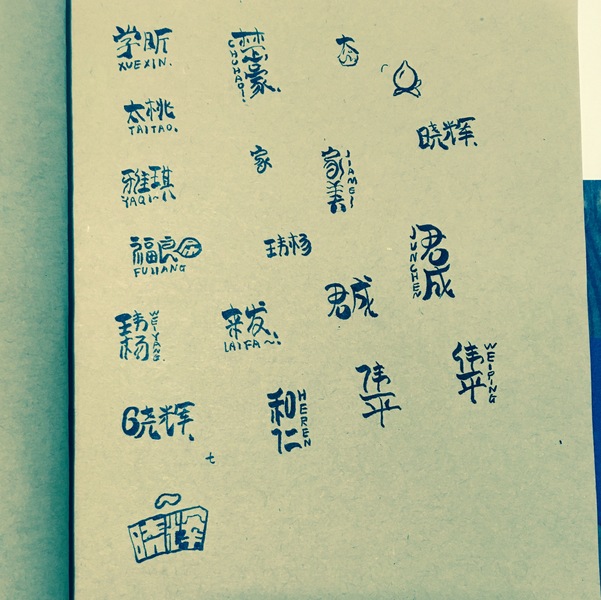 学昕
XUEXIN.
太桃
TAITAO.
雅琪
YAQI~
福良
FULIANG
玮杨
WEIYANG.
晓辉
楚豪
CHUHAO!
家
家美
JIAMEI
玮杨
来发
LAIFA~!
和仁
HEREN
晓辉
君成
君成
JUNCHEN
伟平
伟平
WEIPING
t